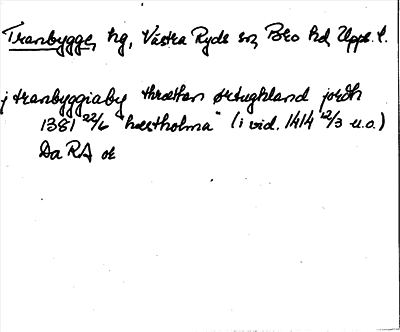 Tranbygge, hg, Västra Ryds sn, Bro hd, Uppl. l.
j tranbyggiaby thrættan ørtughland jordh
1381 22/6 "hærtholma" (i vid. 1414 12/3 u.o.)
Da RA or